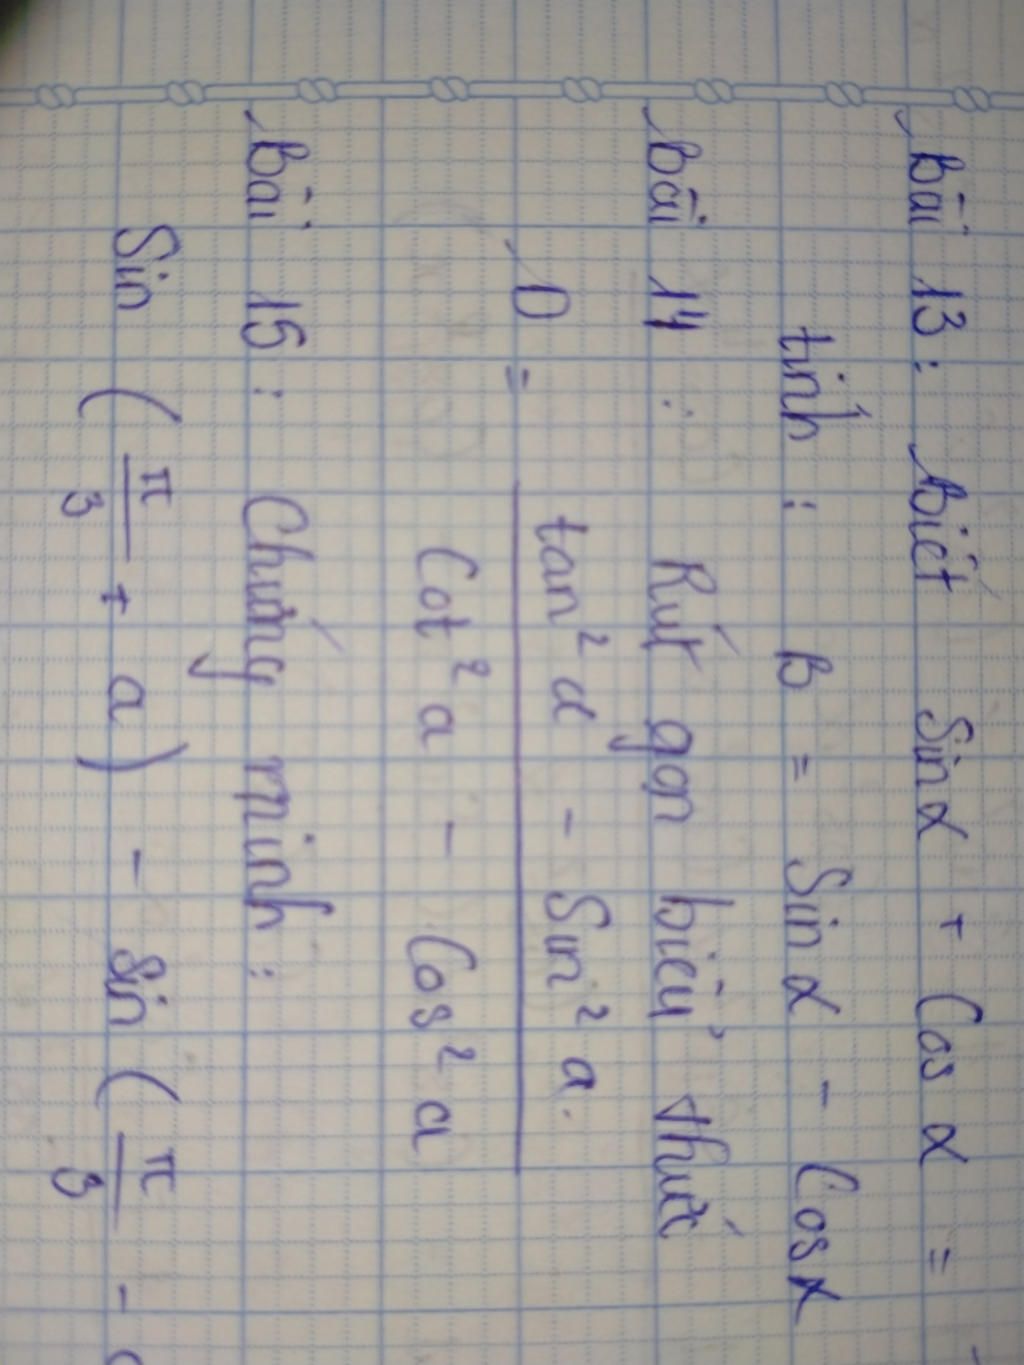 Bài 13: Biết sinα + cosα =
tính: B = sinα - cosα
Bài 14: Rút gọn biểu thức
D = tan²a - sin²a.
cot²a - cos²a
Bài 15: Chứng minh:
sin (π/3 + a) - sin (π/3 -